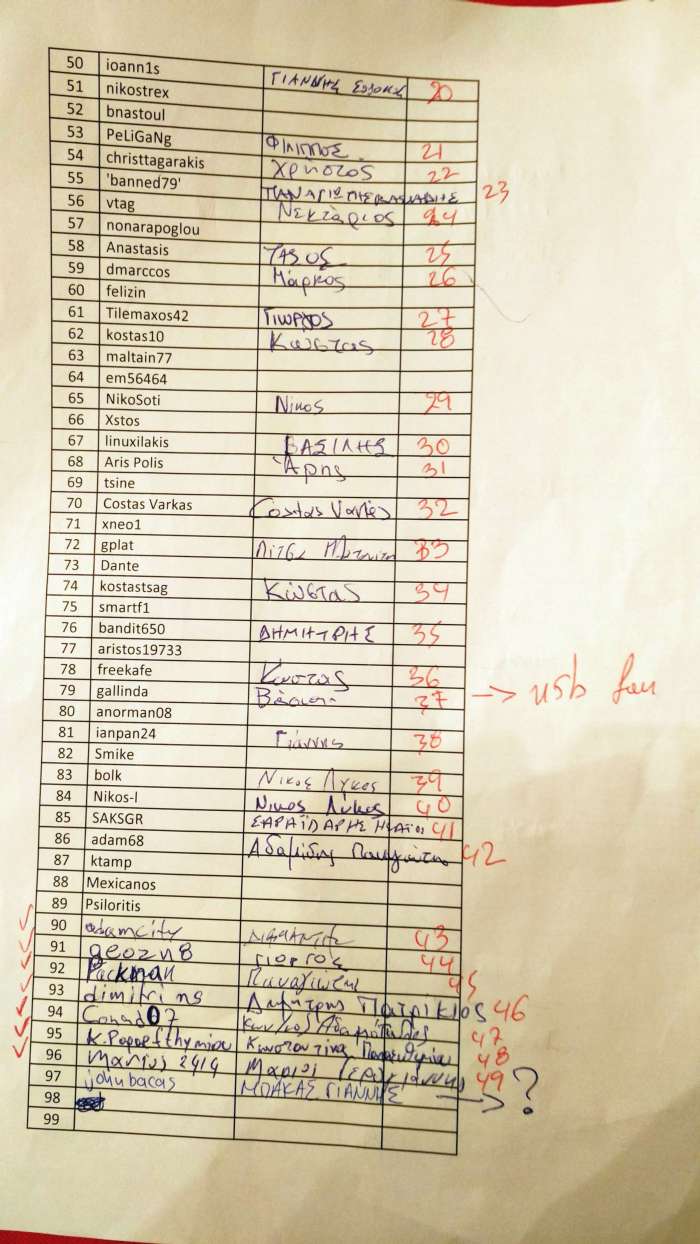 50 ioann1s ΓΙΑΝΝΗΣ 20
51 nikostrex
52 bnastoul
53 PeLiGaNg ΦΙΛΙΠΠΟΣ 21
54 christtagarakis Χρήστος 22
55 'banned79' 23
56 vtag Νεκτάριος 24
57 nonarapoglou
58 Anastasis ΤΑΣΟΣ 25
59 dmarccos Μάρκος 26
60 felizin
61 Tilemaxos42 Γιωργος 27
62 kostas10 Κώστας 28
63 maltain77
64 em56464
65 NikoSoti Νικος 29
66 Xstos
67 linuxilakis ΒΑΣΙΛΗΣ 30
68 Aris Polis Άρης 31
69 tsine
70 Costas Varkas Costas 32
71 xneo1
72 gplat 33
73 Dante
74 kostastsag Κώστας 34
75 smartf1
76 bandit650 ΔΗΜΗΤΡΗΣ 35
77 aristos19733
78 freekafe Κωστας 36
79 gallinda 37 → usb fan
80 anorman08
81 ianpan24 Γιάννης 38
82 Smike
83 bolk Νικος Λύκος 39
84 Nikos-l Νικος Λύκος 40
85 SAKSGR 41
86 adam68 Αδαμίδης Παναγιώτης 42
87 ktamp
88 Mexicanos
89 Psiloritis
90 adamcity 43
91 geozn8 ΓΙΟΡΓΟΣ 44
92 Packman Παναγιώτης 45
93 dimitrins Δημήτρης Πατρίκιος 46
94 Conad07 47
95 K.Papaefthymiou Κωνσταντίνα Παπαευθυμίου 48
96 Marios 2414 Μαριος 49
97 johnbacas ΜΠΑΚΑΣ ΓΙΑΝΝΗΣ → ?
98
99